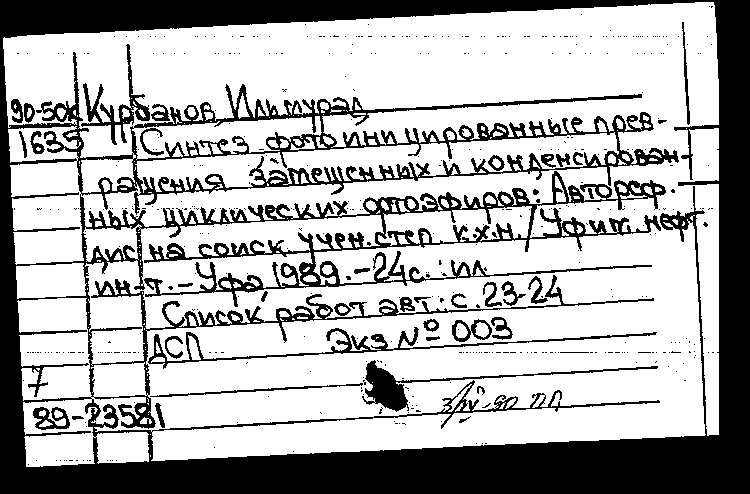 90-50к Курбанов, Ильмурад
1635 Синтез, фотоинициированные прев-
ращения замещенных и конденсирован-
ных циклических ортоэфиров: Автореф.
дис. на соиск. учен. степ. к.х.н. / Уфим. нефт.
ин-т. - Уфа, 1989. - 24с. : ил.
Список работ авт.: с. 23-24
ДСП Экз № 003
7
89-23581